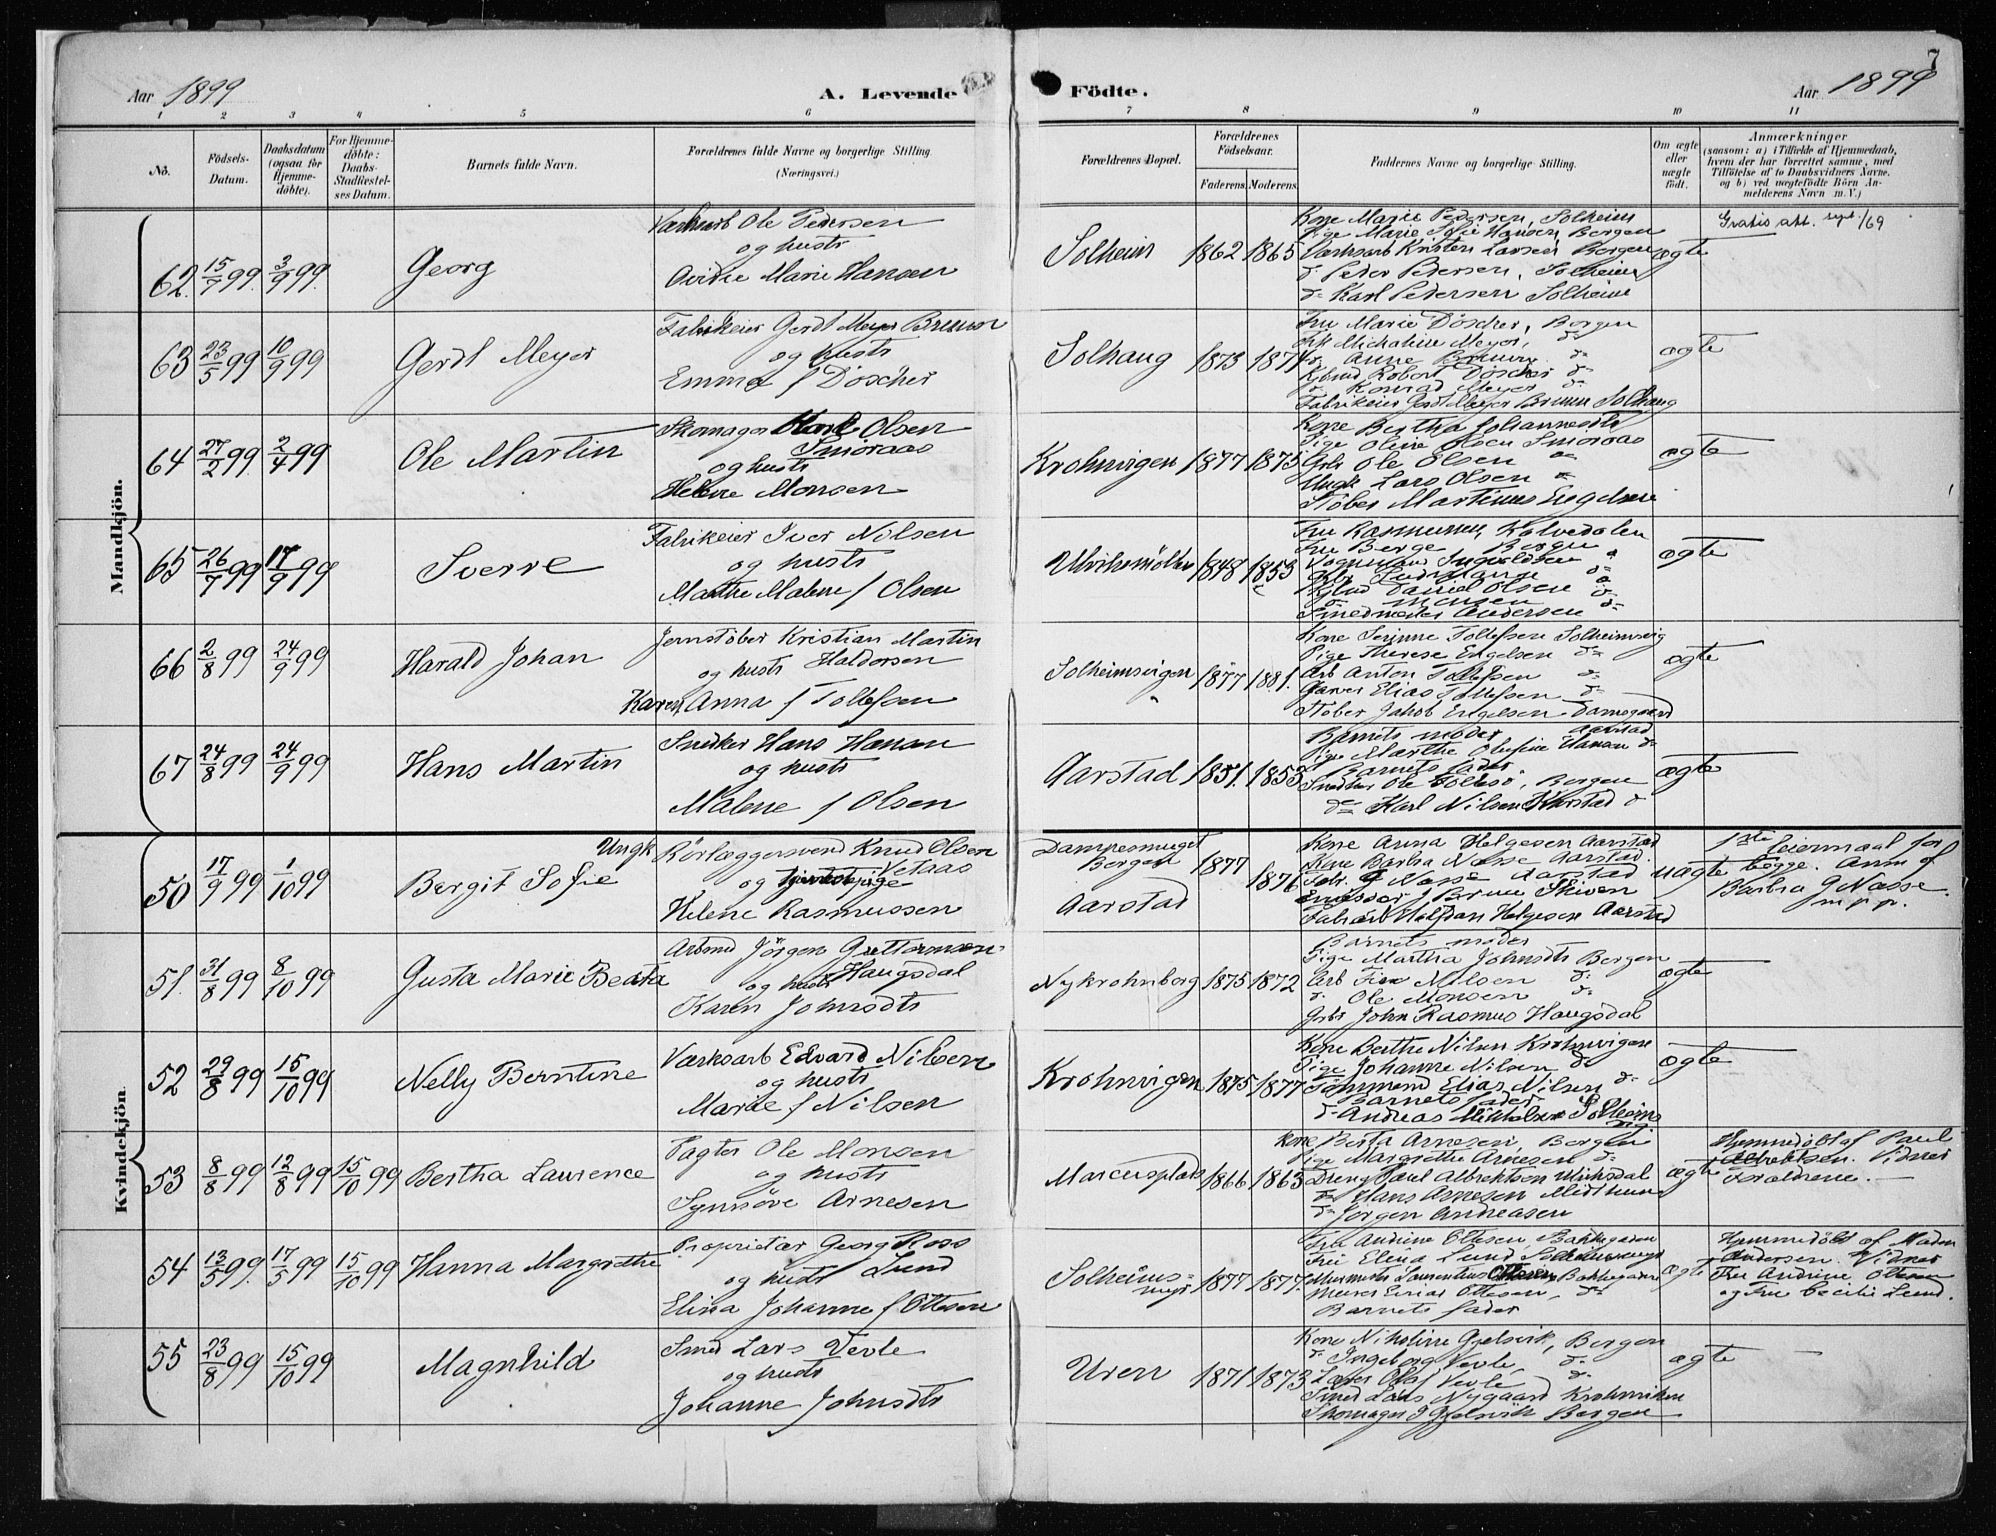 7
Aar 1899
A. Levende
Födte.
Aar 1899
1 2 3 4 5 6 7 8 9 10 11
No.
Födsels-
Datum.
Daabsdatum
(ogsaa for
Hjemme-
döbte).
For Hjemme-
döbte:
Daabs-
Stadfæstel-
ses Datum.
Barnets fulde Navn.
Forældrenes fulde Navne og borgerlige Stilling.
(Næringsvei.)
Forældrenes Bopæl.
Forældrenes
Födselsaar.
Faderens.
Moderens.
Faddernes Navne og borgerlige Stilling.
Om ægte
eller
uægte
födt.
Anmærkninger
(saasom: a) i Tilfælde af Hjemmedaab,
hvem der har forrettet samme, med
Tilföielse af to Daabsvidners Navne.
og b) ved uægtefödte Börn An-
melderens Navn m. V.)
Mandkjön.
62 15/7 99 3/9 99 Georg
Værksarb Ole Pedersen
og hustr
Marie Hansen
Solheim 1862 1865
Kone Marie Pedersen, Solheim
Pige Marie Sofie Hansen, Bergen
Værksarb Kristen Larsen Bergen
d: Peder Pedersen, Solheim
d: Karl Pedersen Solheim
ægte
Gratis att. /69
63 23/5 99 10/9 99 Gerdt Meyer
Fabrikeier Gerdt Meyer Bruun
og hustr
Emma f Döscher
Solhaug 1873 1871
Fru Marie Döscher, Bergen
Frk Michaline Meyer, d:
d: Anne Bruun d:
Robert Döscher d:
d: Konrad Meyer d:
Fabrikeier Gerdt Meyer Bruun Solhaug
ægte
64 27/2 99 2/4 99 Ole Martin
Skomager Olsen
Smöraas
og hustr
Helene Monsen
Krohnvigen 1877 1875
Kone Bertha Johannesdtr
Pige Oline Olsen Smöraas
Gbr Ole Olsen d:
Ungk Lars Olsen
Stöber Martinus Engelsen
ægte
65 26/7 99 17/9 99 Sverre
Fabrikeier Iver Nilsen
og hustr
Marthe Malene f Olsen
1848 1853
Fru Rasmussen, Kalvedalen
Fru Berge Bergen
Vognmand Ingvaldsen
Daniel Olsen d:
d: Monsen d:
Smedmester Andersen d:
ægte
66 2/8 99 24/9 99 Harald Johan
Jernstöber Kristian Martin
Haldorsen
og hustr
Karen Anna f Tollefsen
Solheimsvigen 1877 1881.
Kone Serinne Tollefsen Solheimsvig
Pige Therese Engelsen d:
Arb Anton Tollefsen d:
Garver Elias Tollefsen d:
Stöber Jakob Engelsen Damsgaard
ægte
67 24/8 99 24/9 99 Hans Martin
Snedker Hans Hansen
og hustr
Malene f Olsen
Aarstad 1851. 1853
Barnets moder Aarstad
Pige Marthe Olufine Hansen d:
Barnets fader
Snedker Ole Bergen
d: Karl Nilsen Aarstad d:
ægte
Kvindekjön.
50 17/9 99 1/10 99 Bergit Sofie
Ungk Rörlæggersvend Knud Olsen
Vetaas
og pige
Helene Rasmussen
Dampesmuget
Bergen
Aarstad
1877 1876
Kone Anna Helgesen Aarstad
Kone Barbra Næsse Aarstad.
Fabr. G Næsse Aarstad
J Bruu Skiven
Fabrarb Halfdan Helgesen Aarstad
uægte
1ste leiermaal for
begge. Anm af
Barbra G Næsse.
m.p.p.
51. 31/8 99 8/10 99 Gusta Marie Beata
Arbmd Jörgen Guttormsen
Haugsdal
og hustr
Karen Johnsdtr
Nykrohnborg 1875 1872
Barnets moder
Pige Martha Johnsdtr Bergen
Arb Nilsen d:
d: Ole Monsen d:
Grbr John Rasmus Haugsdal
ægte
52 29/8 99 15/10 99 Nelly Berntine
Værksarb Edvard Nilsen
og hustr
Marie f Nilsen
Krohnvigen 1875 1877
Kone Berthe Nilsen Krohnvigen
Pige Johanne Nilsen do
Tömmermd Elias Nilsen d:
Barnets fader
d: Andreas Mikkelsen Solheims
vig
ægte
53 8/8 99 12/8 99 15/10 99 Bertha Laurence
Vagter Ole Monsen
og hustr
Synnöve Arnesen
Marcusplads 1866 1863
Kone Berta Arnesen, Bergen
Pige Margrethe Arnesen d:
Dreng Paul Albrektsen
d: Hans Arnesen
d: Jörgen Andreasen
ægte
Hjemmedöbt af Paul
Albrektsen. Vidner
Forældrene.
54 13/5 99. 17/5 99 15/10 99 Hanna Margrethe
Proprietær Georg Ross
Lund
og hustr
Elina Johanne f Ottesen
Solheims-
myr 1877 1877.
Fru Andrine Ottesen Bakkegaden
Fru Elina Lund Solheimsmyr
Murmester Laurentius Ottesen Bakkegaden
Murer Einar Ottesen, d:
Barnets fader
ægte
Hjemmedöbt af Madm
Andersen. Vidner
Fru Andrine Ottesen
og Fru Cecilie Lund.
55 23/8 99 15/10 99 Magnhild
Smed Lars Vevle
og hustr
Johanne Johnsdtr
Uren 1871 1873
Kone Nikoline Gjelsvik, Bergen
d: Ingeborg Vevle d:
Olaf Vevle d:
Smed Lars Nygaard Krohnviken
Skomager J Gjelsvik Bergen
ægte